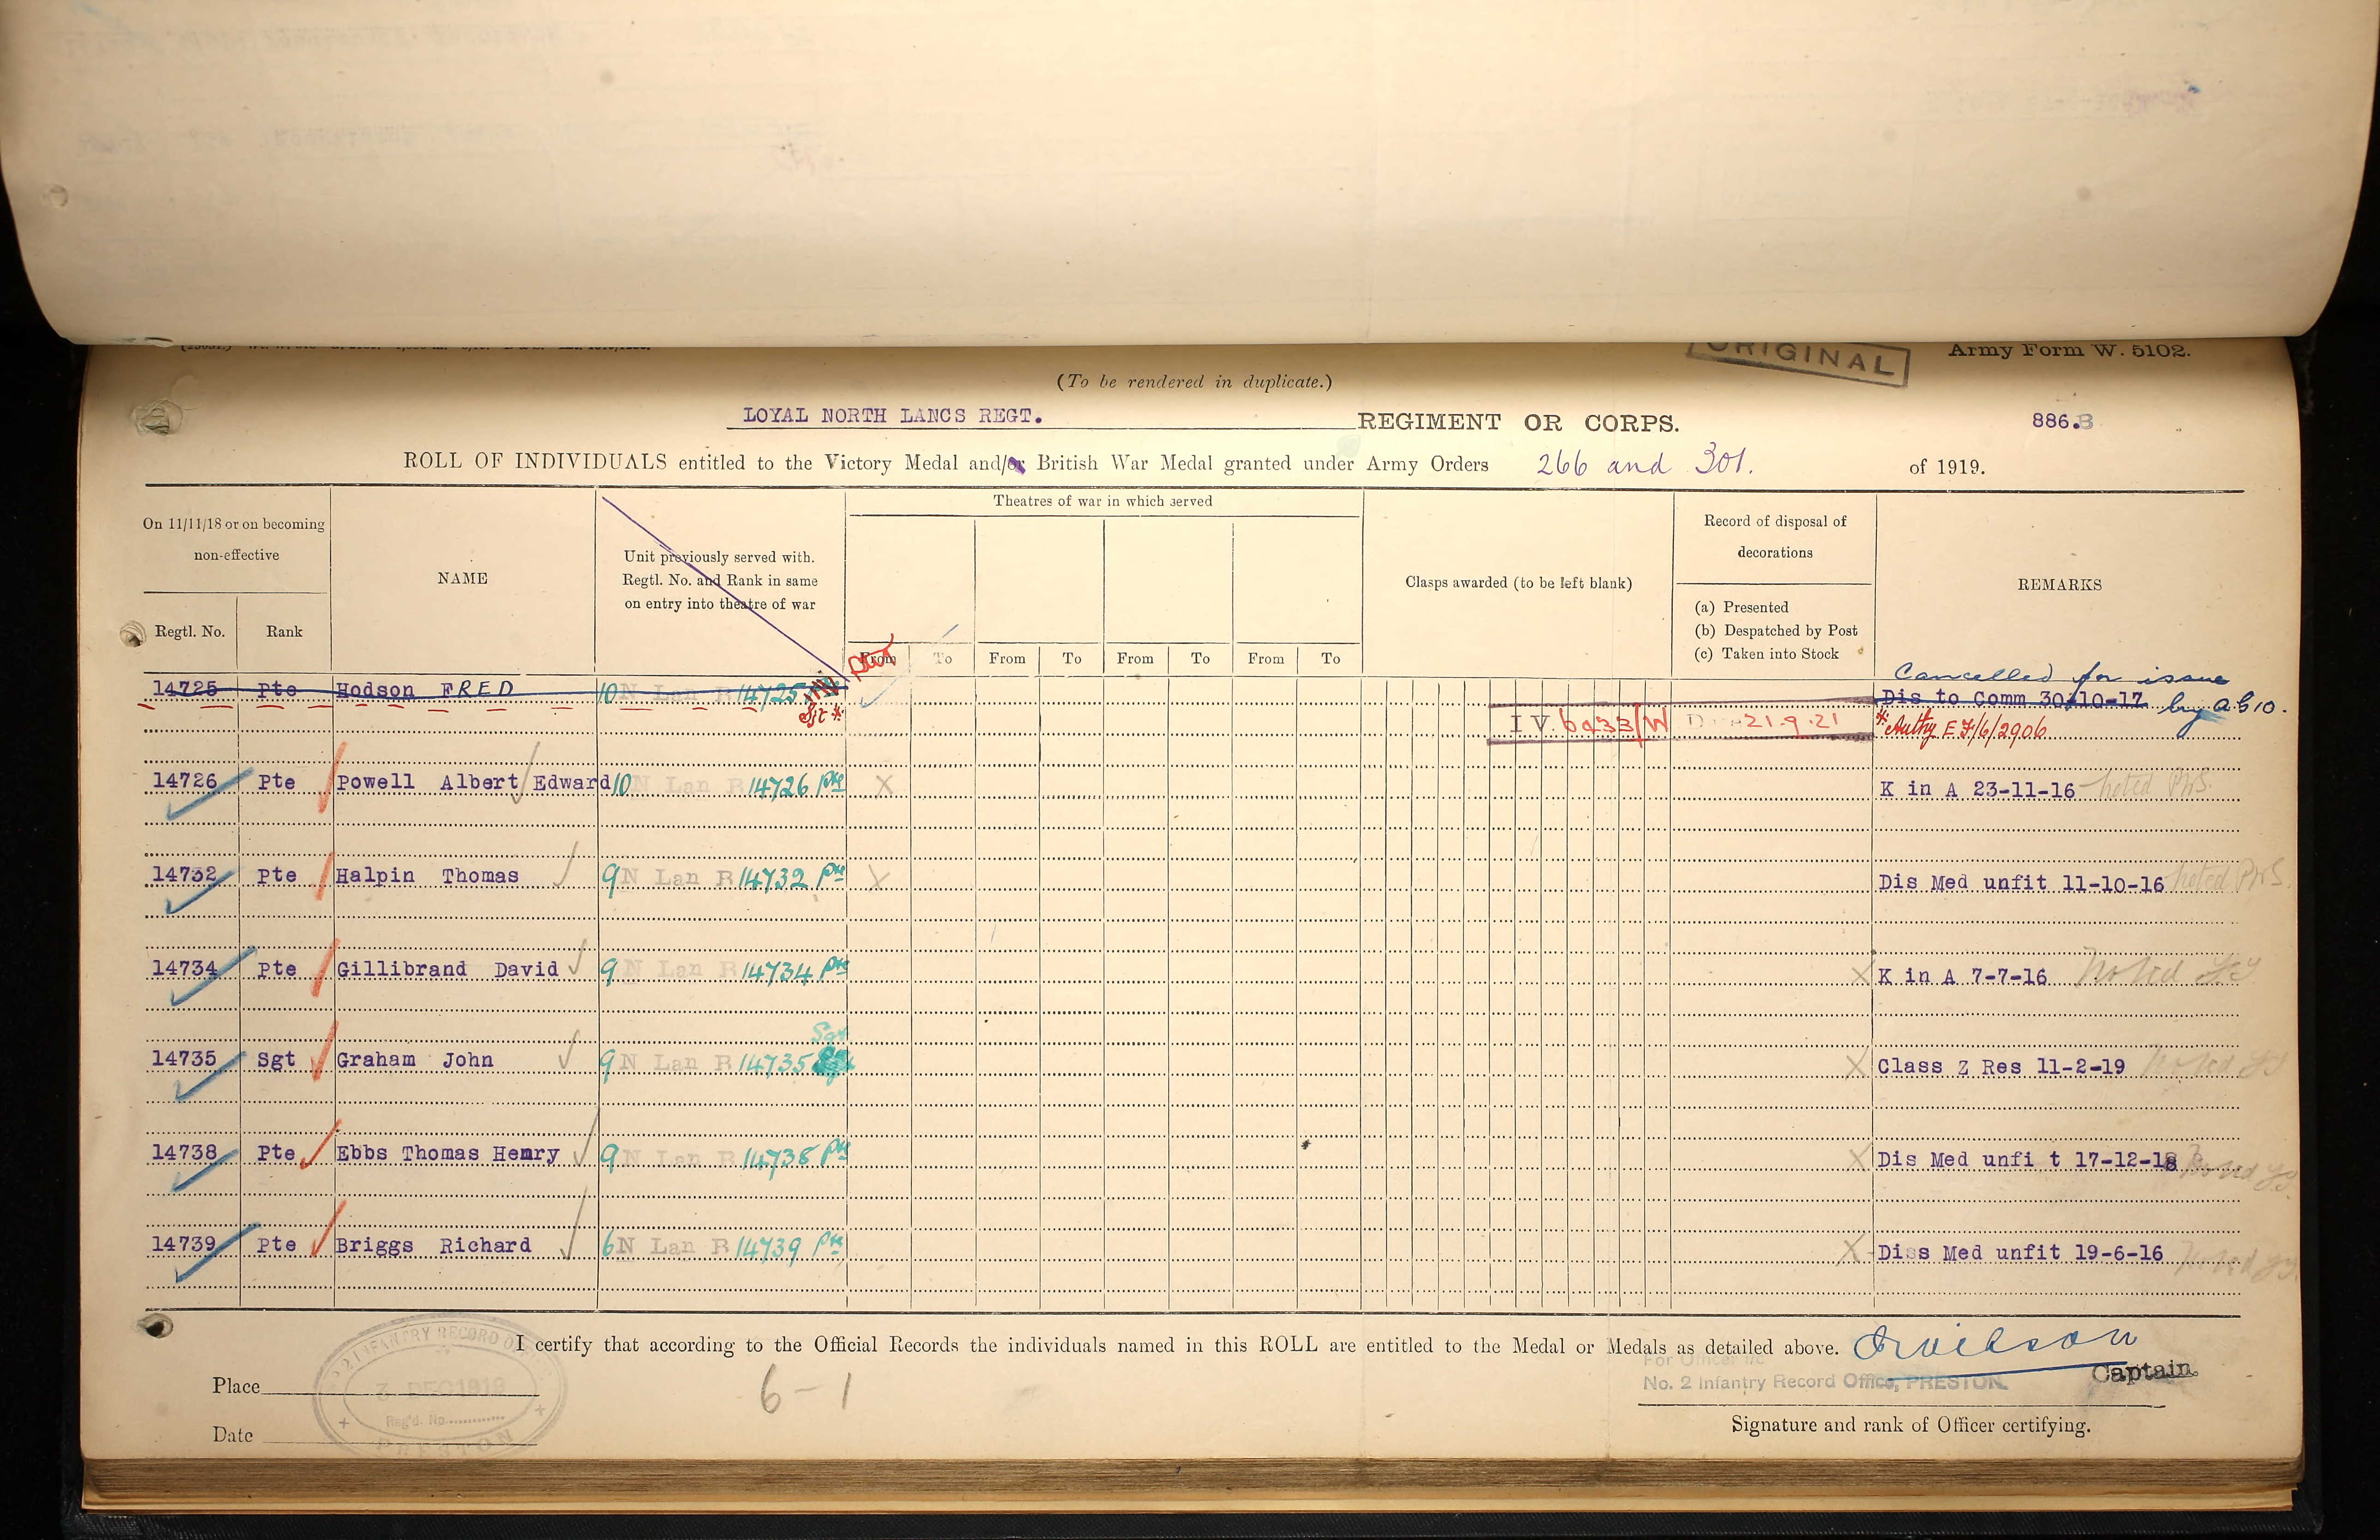 ORIGINAL
Army Form W. 5102.
(To be rendered in duplicate.)
LOYAL NORTH LANCS REGT. REGIMENT OR CORPS. 886.B
ROLL OF INDIVIDUALS entitled to the Victory Medal and/or British War Medal granted under Army Orders 266 and 301. of 1919.
On 11/11/18 or on becoming non-effective
Regtl. No.
Rank
NAME
Unit previously served with.
Regtl. No. and Rank in same
on entry into theatre of war
Theatres of war in which served
From To From To From To From To
Clasps awarded (to be left blank)
Record of disposal of
decorations
(a) Presented
(b) Despatched by Post
(c) Taken into Stock
REMARKS
Cancelled for issue
14725 Pte Hodson FRED 10 N Lan R 14725 Dis to Comm 30-10-17 by
Sjt * IV 6933/W 21.9.21 * Authy E
14726 Pte Powell Albert Edward 10 N Lan R 14726 Pte X K in A 23-11-16 noted
14732 Pte Halpin Thomas 9 N Lan R 14732 Pte X Dis Med unfit 11-10-16 noted
14734 Pte Gillibrand David 9 N Lan R 14734 Pte X K in A 7-7-16 Noted
Sgt
14735 Sgt Graham John 9 N Lan R 14735 X Class Z Res 11-2-19 Noted
14738 Pte Ebbs Thomas Henry 9 N Lan R 14738 Pte X Dis Med unfi t 17-12-18 Noted
14739 Pte Briggs Richard 6 N Lan R 14739 Pte X Diss Med unfit 19-6-16 Noted
I certify that according to the Official Records the individuals named in this ROLL are entitled to the Medal or Medals as detailed above.
For Officer i/c
No. 2 Infantry Record Office, PRESTON.
Captain
Signature and rank of Officer certifying.
Place
Date
6-1
INFANTRY RECORD
DEC 1919
Reg'd. No.
PRESTON